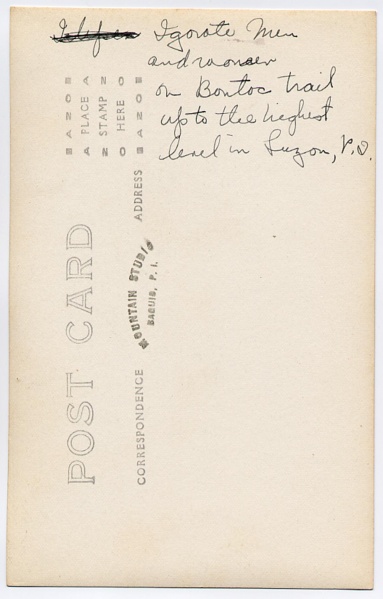 Igorote Men
on Bontoc trail
up to the highest
level in Luzon, P.I.
AZO
PLACE
STAMP
HERE
AZO
POST CARD
CORRESPONDENCE
ADDRESS
MOUNTAIN STUDIO
BAGUIO, P. I.